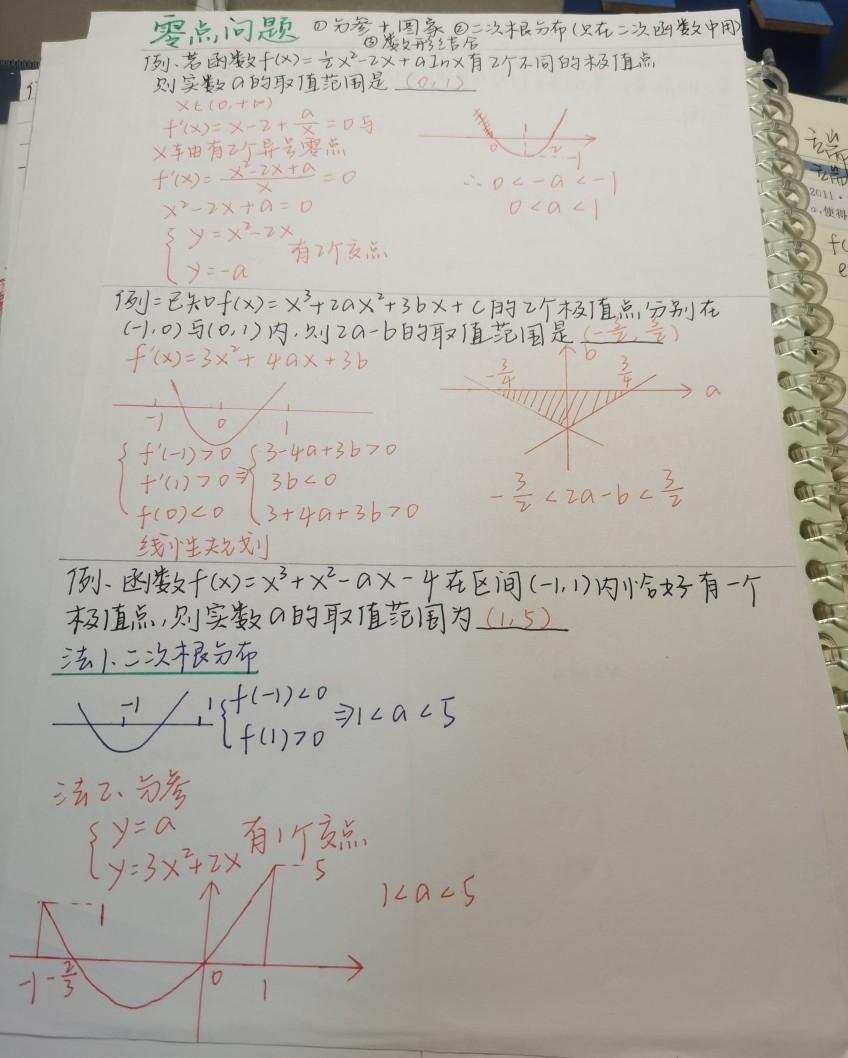 零点问题 ①分参+图象 ②二次根分布(只在二次函数中用)
③数形结合
例、若函数f(x)=½x²-2x+alnx有2个不同的极值点
则实数a的取值范围是 (0,1)
x∈(0,+∞)
f'(x)=x-2+a/x=0与
x轴有2个异号零点
f'(x)=(x²-2x+a)/x=0
x²-2x+a=0
{y=x²-2x
y=-a
有2个交点
0 1 2 -1
∴0<-a<-1
0<a<1
例=已知f(x)=x³+2ax²+3bx+c的2个极值点分别在
(-1,0)与(0,1)内,则2a-b的取值范围是 (-3/2,3/2)
f'(x)=3x²+4ax+3b
-1 0 1
{f'(-1)>0
f'(1)>0
f(0)<0
⇒{3-4a+3b>0
3b<0
3+4a+3b>0
线性规划
b
-3/4 3/4 a
-3/2<2a-b<3/2
例、函数f(x)=x³+x²-ax-4在区间(-1,1)内恰好有一个
极值点,则实数a的取值范围为 (1,5)
法1、二次根分布
-1 1
{f(-1)<0
f(1)>0
⇒1<a<5
法2、分参
{y=a
y=3x²+2x
有1个交点
5
1
-1 -2/3 0 1
1<a<5
2011·
a,使得